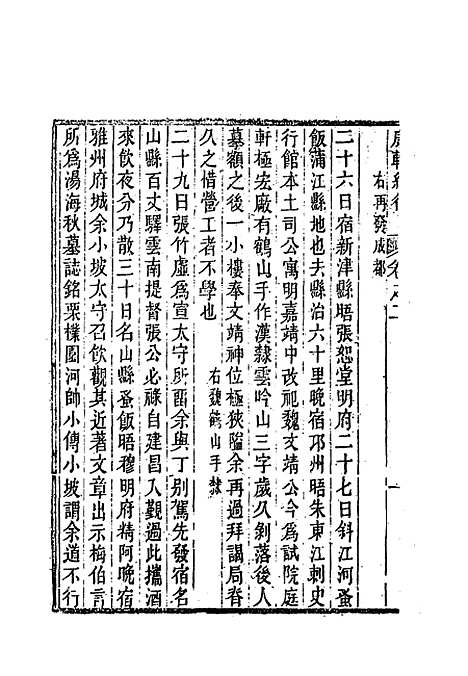 右再發成都
二十六日宿新津縣晤張恕堂明府二十七日斜江河蚤
飯蒲江縣地也去縣治六十里晚宿邛州晤朱東江刺史
行館本土司公寓明嘉靖中改祀魏文靖公今爲試院庭
軒極宏厰有鶴山手作漢隸雲吟山三字歲久剝落後人
摹額之後一小樓奉文靖神位極狹隘余再過拜謁局脊
久之惜營工者不學也
右魏鶴山手隸
二十九日張竹虛爲宣太守所畱余與丁别駕先發宿名
山縣百丈驛雲南提督張公必祿自建昌入覲過此攜酒
來飲夜分乃散三十日名山縣蚤飯晤穆明府精阿晚宿
雅州府城余小坡太守召飲觀其近著文章出示梅伯言
所爲湯海秋墓誌銘栗樸園河帥小傳小坡謂余道不行